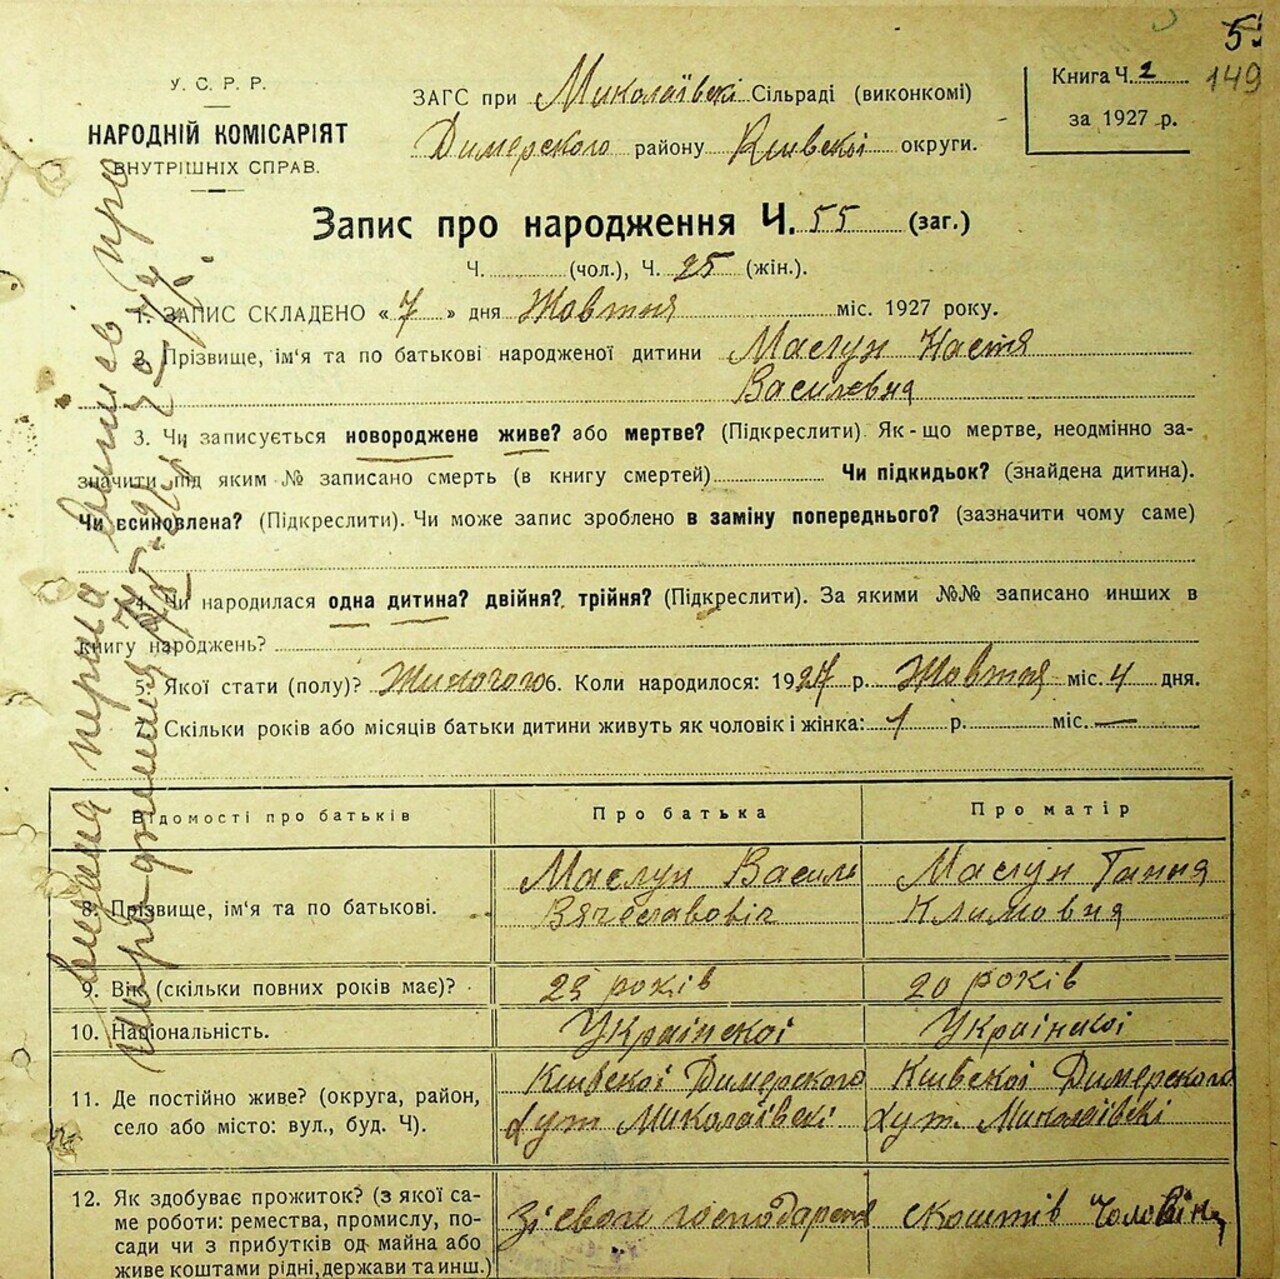 5
149
У. С. Р. Р.
НАРОДНІЙ КОМІСАРІЯТ
ВНУТРІШНІХ СПРАВ.
ЗАГС при Миколаївскі Сільраді (виконкомі)
Димерского району Київскої округи.
Книга Ч. 2
за 1927 р.
Запис про народження Ч. 55 (заг.)
Ч. (чол.), Ч. 25 (жін.).
1. ЗАПИС СКЛАДЕНО « 7 » дня Жовтня міс. 1927 року.
2. Прізвище, ім'я та по батькові народженої дитини Маслун Настя
Василевня
3. Чи записується новороджене живе? або мертве? (Підкреслити). Як-що мертве, неодмінно за-
значити під яким № записано смерть (в книгу смертей) Чи підкидьок? (знайдена дитина).
Чи всиновлена? (Підкреслити). Чи може запис зроблено в заміну попереднього? (зазначити чому саме)
4. Чи народилася одна дитина? двійня? трійня? (Підкреслити). За якими №№ записано инших в
книгу народжень?
5. Якої стати (полу)? Жиночого 6. Коли народилося: 1927 р. Жовтня міс. 4 дня.
7. Скільки років або місяців батьки дитини живуть як чоловік і жінка: 1 р. міс. —
Відомості про батьків
Про батька
Про матір
8. Прізвище, ім'я та по батькові.
Маслун Василь
Вячеславовіч
Маслун Гання
Климовня
9. Вік (скільки повних років має)?
23 років
20 років
10. Національність.
Українскої
Українскої
11. Де постійно живе? (округа, район,
село або місто: вул., буд. Ч).
Київскої Димерского
хут Миколаївскі
Київскої Димерского
хут. Миколаївскі
12. Як здобуває прожиток? (з якої са-
ме роботи: ремества, промислу, по-
сади чи з прибутків од майна або
живе коштами рідні, держави та инш.)
Зі свого господарства
скоштів Чоловіка